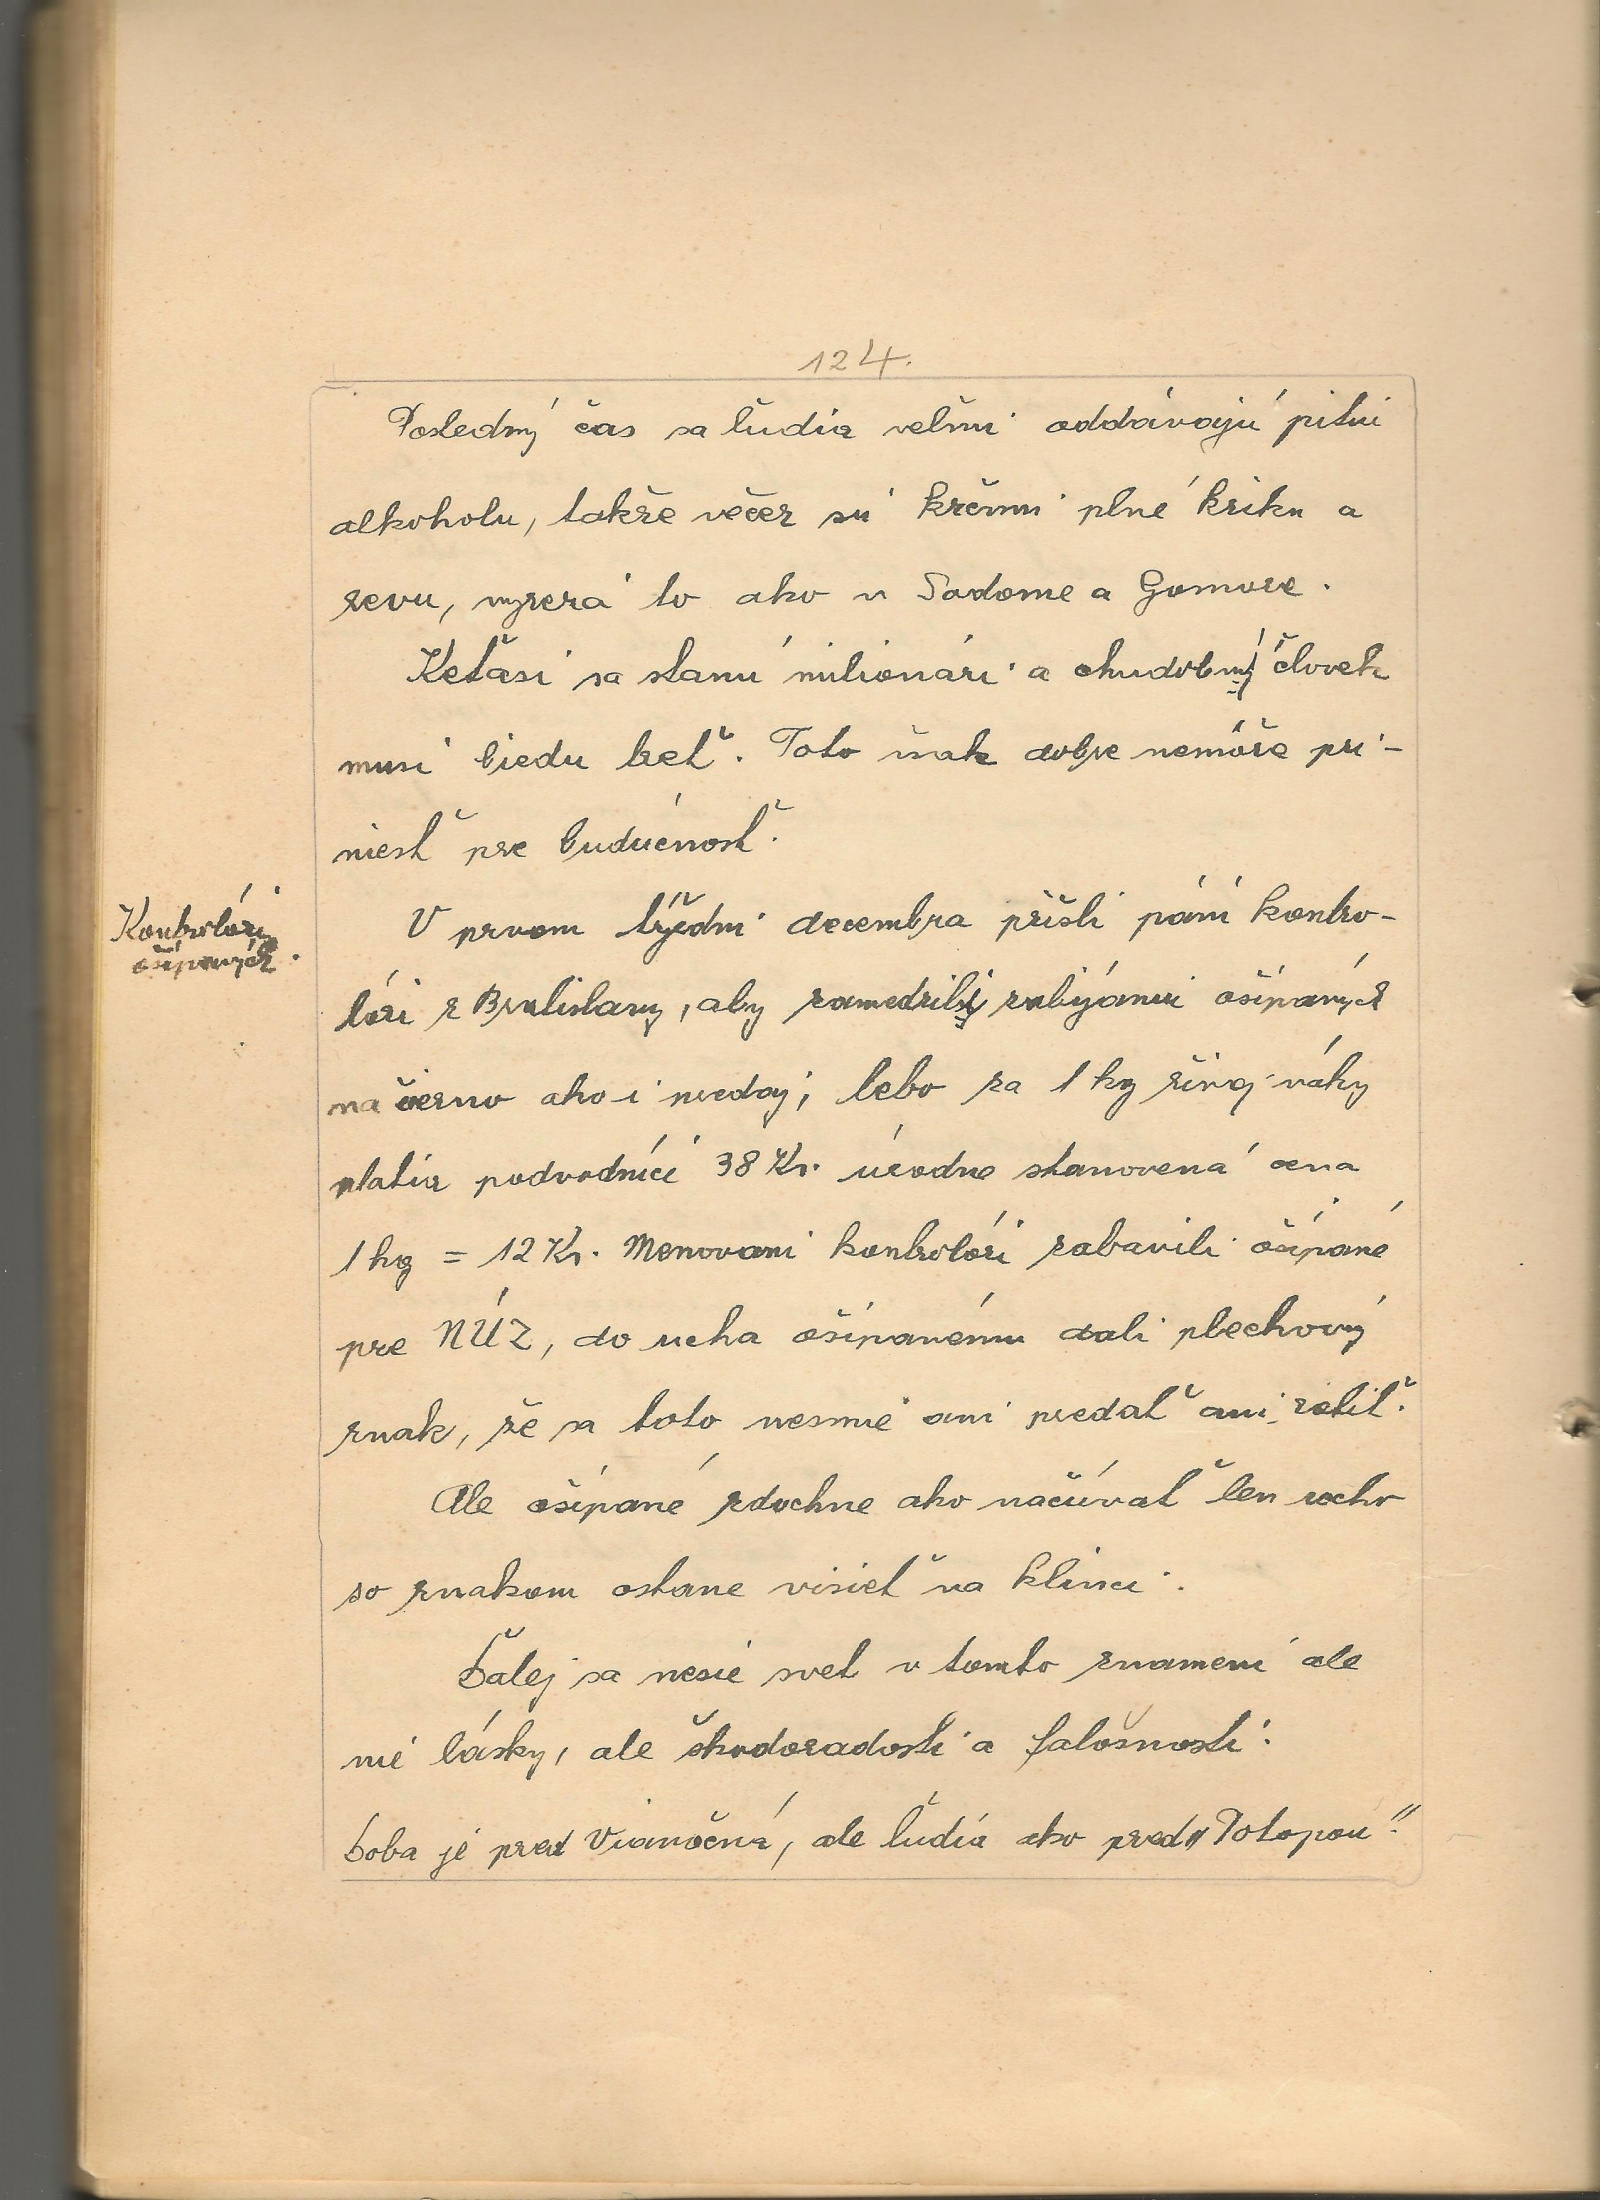 124.
Posledný čas sa ľudia veľmi oddávajú pitiu
alkoholu, takže večer sú krčmi plné kriku a
revu, vyzerá to ako v Sodome a Gomore.
Keťasi sa stanú milionári a chudobný človek
musí biedu treť. Toto však dobre nemôže pri-
niesť pre budúcnosť.
Kontrolóri
ošípaných.
V prvom týždni decembra prišli páni kontro-
lóri z Bratislavy, aby zamedzili zabíjaniu ošípaných
na čierno ako i predaj, lebo za 1 kg živej váhy
platia podvodníci 38 Ks. úradne stanovená cena
1 kg = 12 Ks. Menovaní kontrolóri zabavili ošípané
pre NÚZ, do ucha ošípanému dali plechový
znak, že sa toto nesmie ani predať ani zabiť.
Ale ošípané zdochne ako načúvať len ucho
so znakom ostane visieť na klinci.
Ďalej sa nesie svet v tomto znamení ale
nie lásky, ale škodoradosti a falošnosti.
Doba je pred Vianočná, ale ľudia ako pred „Potopou"